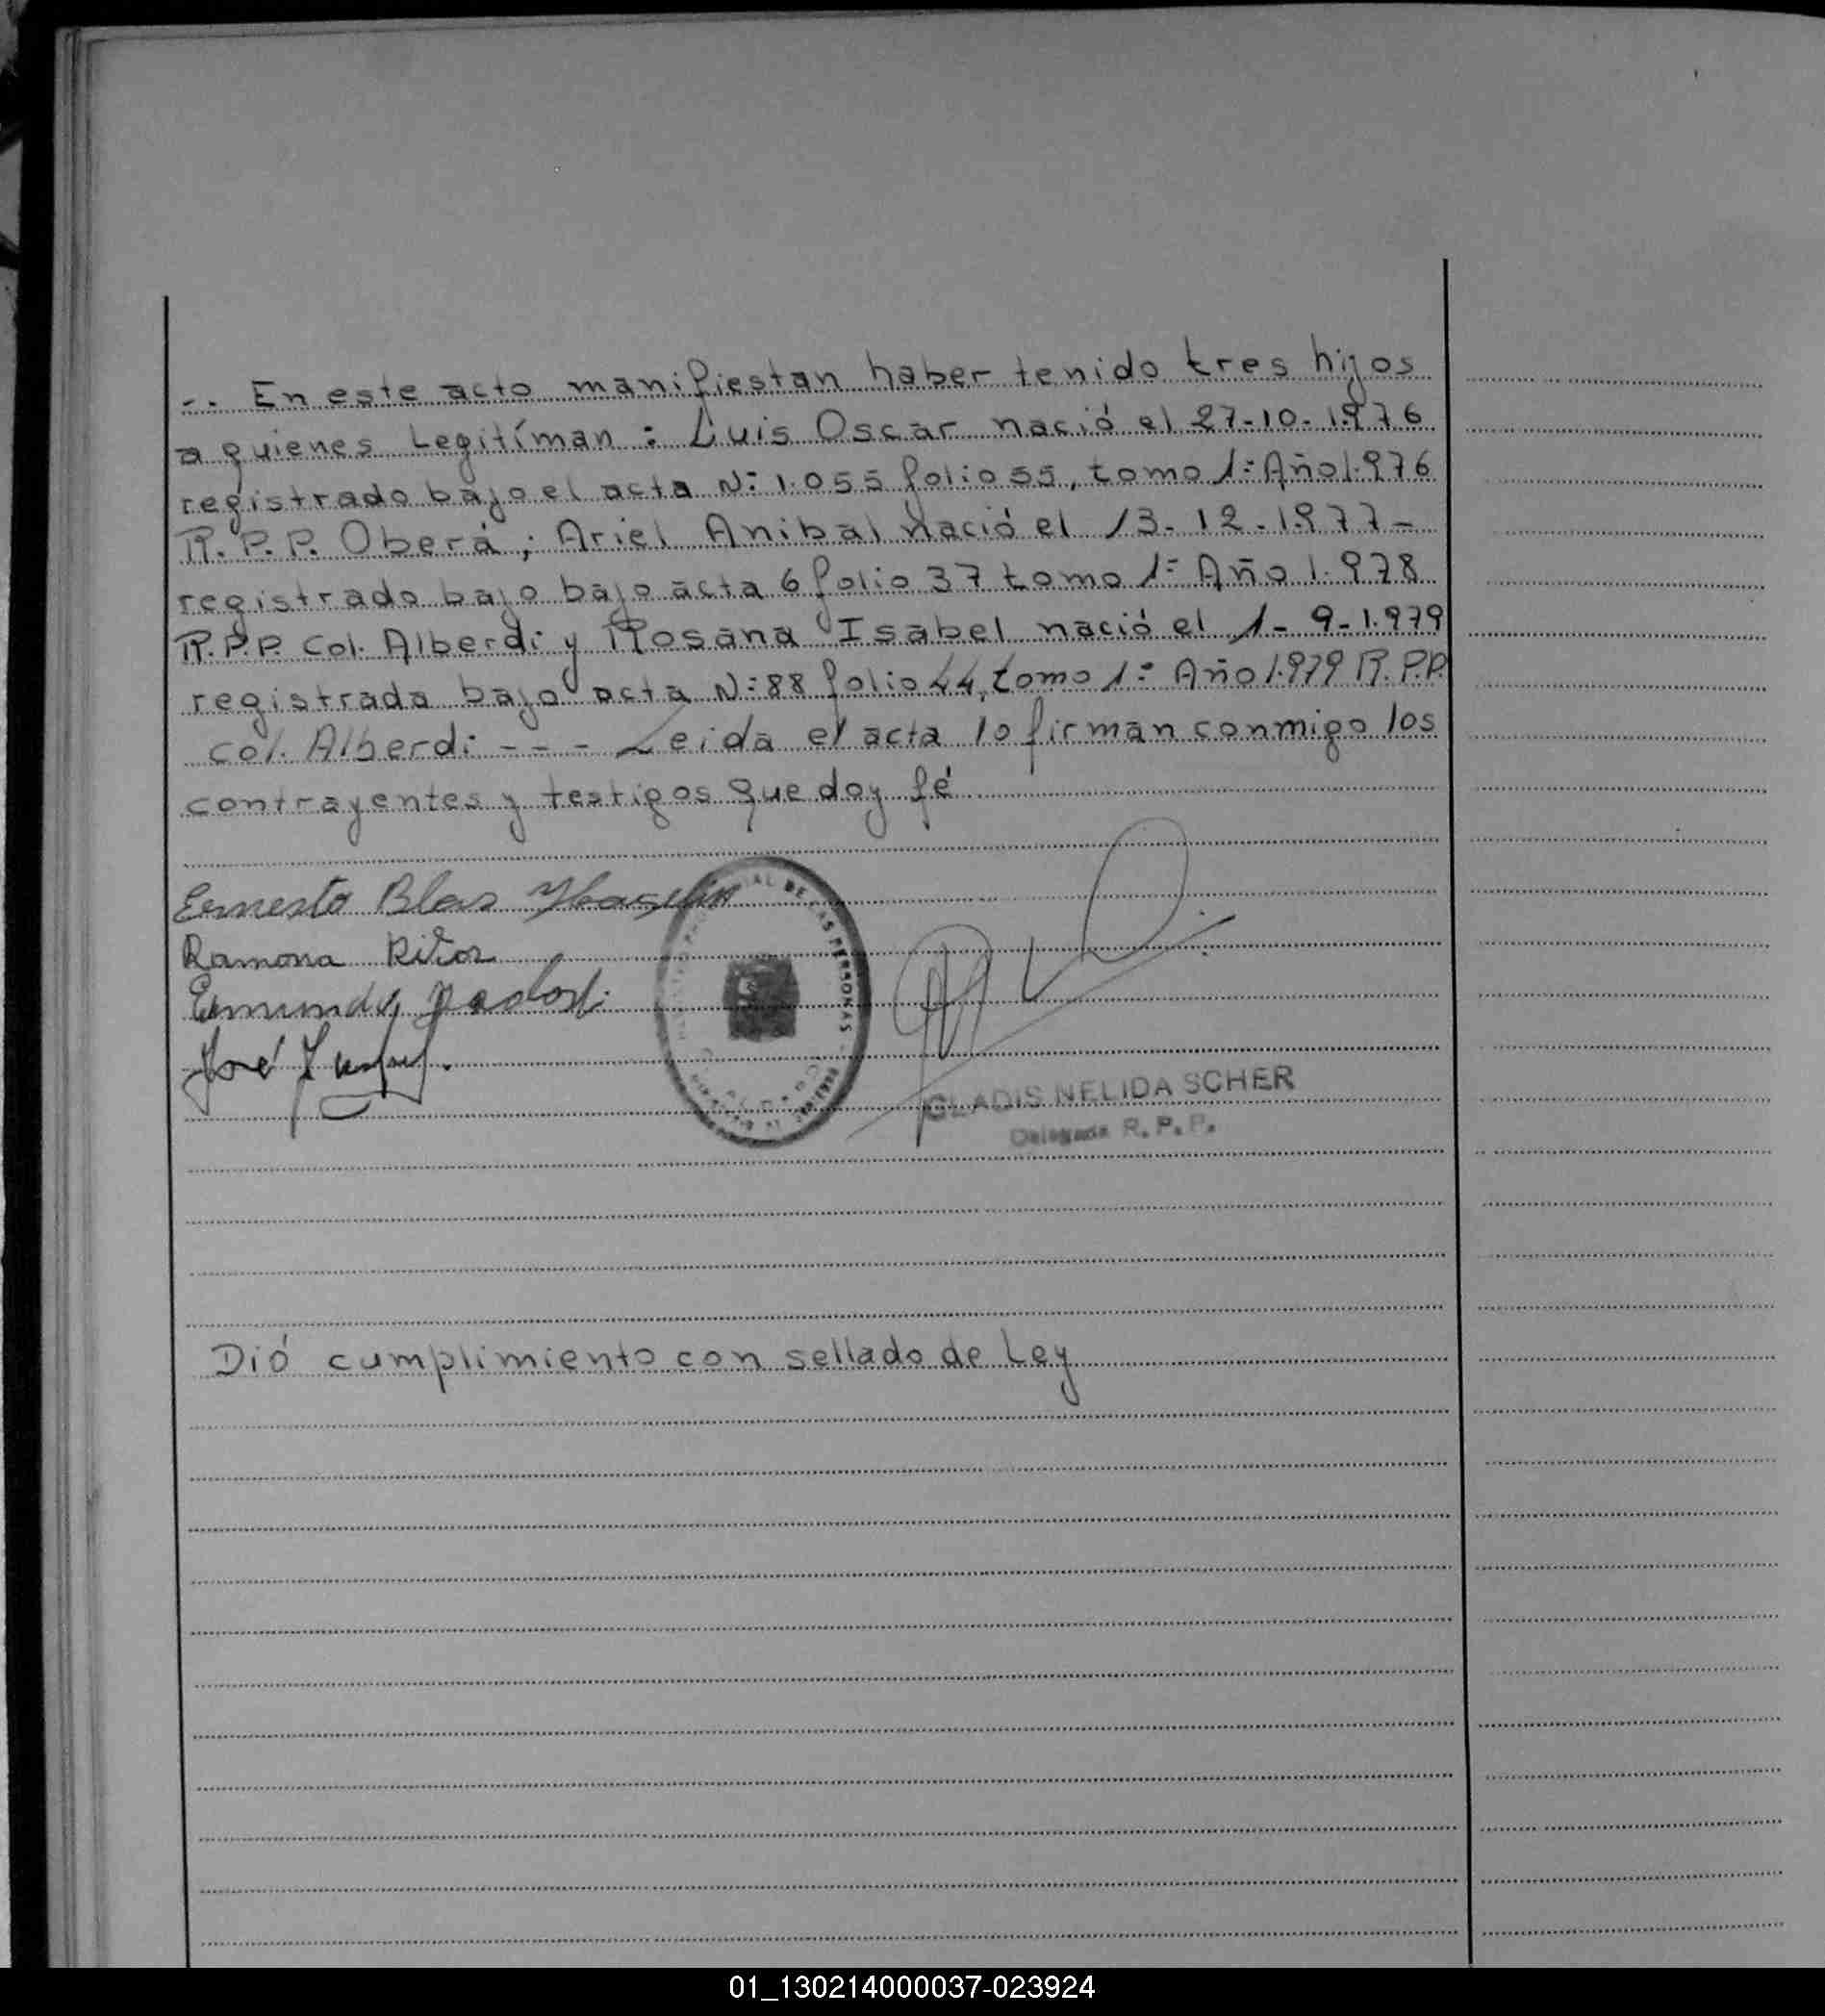 -. En este acto manifiestan haber tenido tres hijos
a quienes Legitíman : Luis Oscar nació el 27-10-1.976
registrado bajo el acta N: 1.055 folio 55, tomo 1: Año 1.976
R.P.P. Oberá; Ariel Anibal nació el 13-12-1.977-
registrado bajo bajo acta 6 folio 37 tomo 1: Año 1.978
R.P.P. Col. Alberdi y Rosana Isabel nació el 1-9-1.979
registrada bajo acta N:88 folio 44, tomo 1: Año 1.979 R.P.P.
Col. Alberdi - - - Leida el acta lo firman conmigo los
contrayentes y testigos que doy fé
Ernesto Blas
Ramona
José
DE LAS PERSONAS
GLADIS NELIDA SCHER
Delegada R. P. P.
Dió cumplimiento con sellado de Ley
01_130214000037-023924